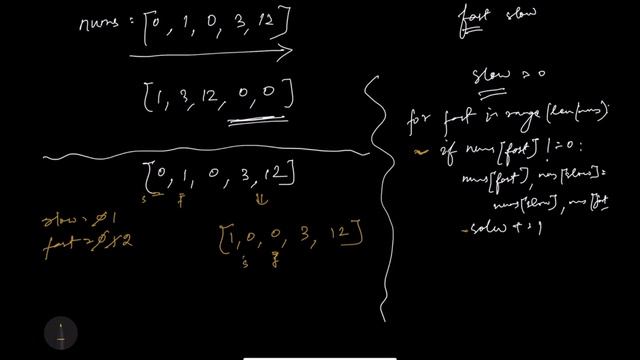 nums = [0, 1, 0, 3, 12]
[1, 3, 12, 0, 0]
[0, 1, 0, 3, 12]
s f
slow = 0 1
fast = 0 1 2
[1, 0, 0, 3, 12]
s f
fast slow
slow = 0
for fast in range (len(nums)
if nums[fast] != 0:
nums[fast], nums[slow] =
nums[slow], nums[fast
solw += 1